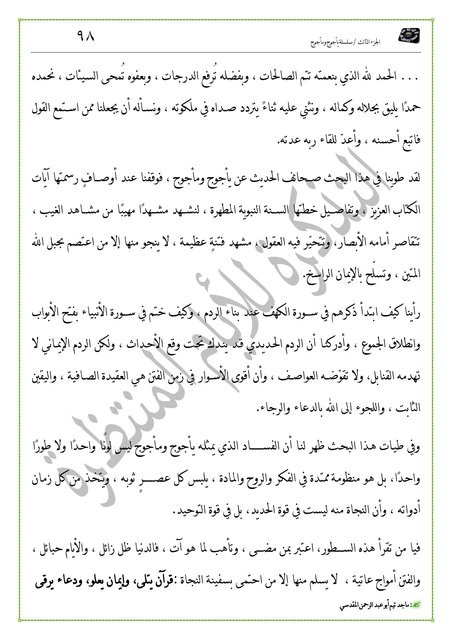 الجزء الثالث / سلسلة يأجوج ومأجوج
٩٨
... الحمد لله الذي بنعمته تتم الصالحات ، وبفضله تُرفع الدرجات ، وبعفوه تُمحى السيئات ، نحمده
حمدًا يليق بجلاله وكماله ، ونثني عليه ثناءً يتردد صداه في ملكوته ، ونسأله أن يجعلنا ممن استمع القول
فاتبع أحسنه ، وأعدّ للقاء ربه عدته.
لقد طوينا في هذا البحث صحائف الحديث عن يأجوج ومأجوج ، فوقفنا عند أوصافٍ رسمتها آيات
الكتاب العزيز ، وتفاصيل خطتها السنة النبوية المطهرة ، لنشهد مشهدًا مهيبًا من مشاهد الغيب ،
تتقاصر أمامه الأبصار، وتتحيّر فيه العقول ، مشهد فتنةٍ عظيمة ، لا ينجو منها إلا من اعتصم بحبل الله
المتين ، وتسلّح بالإيمان الراسخ.
رأينا كيف ابتدأ ذكرهم في سورة الكهف عند بناء الردم ، وكيف ختم في سورة الأنبياء بفتح الأبواب
وانطلاق الجموع ، وأدركنا أن الردم الحديدي قد يندك تحت وقع الأحداث ، ولكن الردم الإيماني لا
تهدمه القنابل، ولا تقوّضه العواصف ، وأن أقوى الأسوار في زمن الفتن هي العقيدة الصافية ، واليقين
الثابت ، واللجوء إلى الله بالدعاء والرجاء.
وفي طيات هذا البحث ظهر لنا أن الفساد الذي يمثله يأجوج ومأجوج ليس لونًا واحدًا ولا طورًا
واحدًا، بل هو منظومة ممتدة في الفكر والروح والمادة ، يلبس كل عصرٍ ثوبه ، ويتخذ من كل زمان
أدواته ، وأن النجاة منه ليست في قوة الحديد، بل في قوة التوحيد.
فيا من تقرأ هذه السطور، اعتبر بمن مضى ، وتأهب لما هو آت ، فالدنيا ظل زائل ، والأيام حبائل ،
والفتن أمواج عاتية ، لا يسلم منها إلا من احتمى بسفينة النجاة :قرآن يتلى، وإيمان يعلو، ودعاء يرقى
: ماجد تيم أبو عبد الرحمن المقدسي
التذكرة للأيام المنتظرة